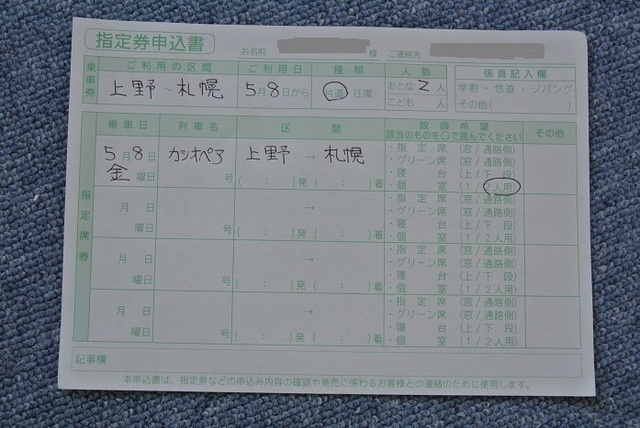 指定券申込書
お名前 様 ご連絡先
乗車券
ご利用の区間 ご利用日 種類 人数 係員記入欄
上野~札幌 5月8日から 片道 往復 おとな 2人 こども 人
学割・悠遊・ジパング
その他( )
指定席券
乗車日 列車名 区間 設備希望 該当のものを○で選んでください その他
5月8日 金曜日 カシオペア 号 上野→札幌 ( : )発 ( : )着
・指定席 (窓/通路側)
・グリーン席 (窓/通路側)
・寝台 (上/下段)
・個室 (1/2人用)
月 日 曜日 号 → ( : )発 ( : )着
・指定席 (窓/通路側)
・グリーン席 (窓/通路側)
・寝台 (上/下段)
・個室 (1/2人用)
月 日 曜日 号 → ( : )発 ( : )着
・指定席 (窓/通路側)
・グリーン席 (窓/通路側)
・寝台 (上/下段)
・個室 (1/2人用)
月 日 曜日 号 → ( : )発 ( : )着
・指定席 (窓/通路側)
・グリーン席 (窓/通路側)
・寝台 (上/下段)
・個室 (1/2人用)
記事欄
本申込書は、指定券などの申込み内容の確認や発売に係わるお客様との連絡のために使用します。